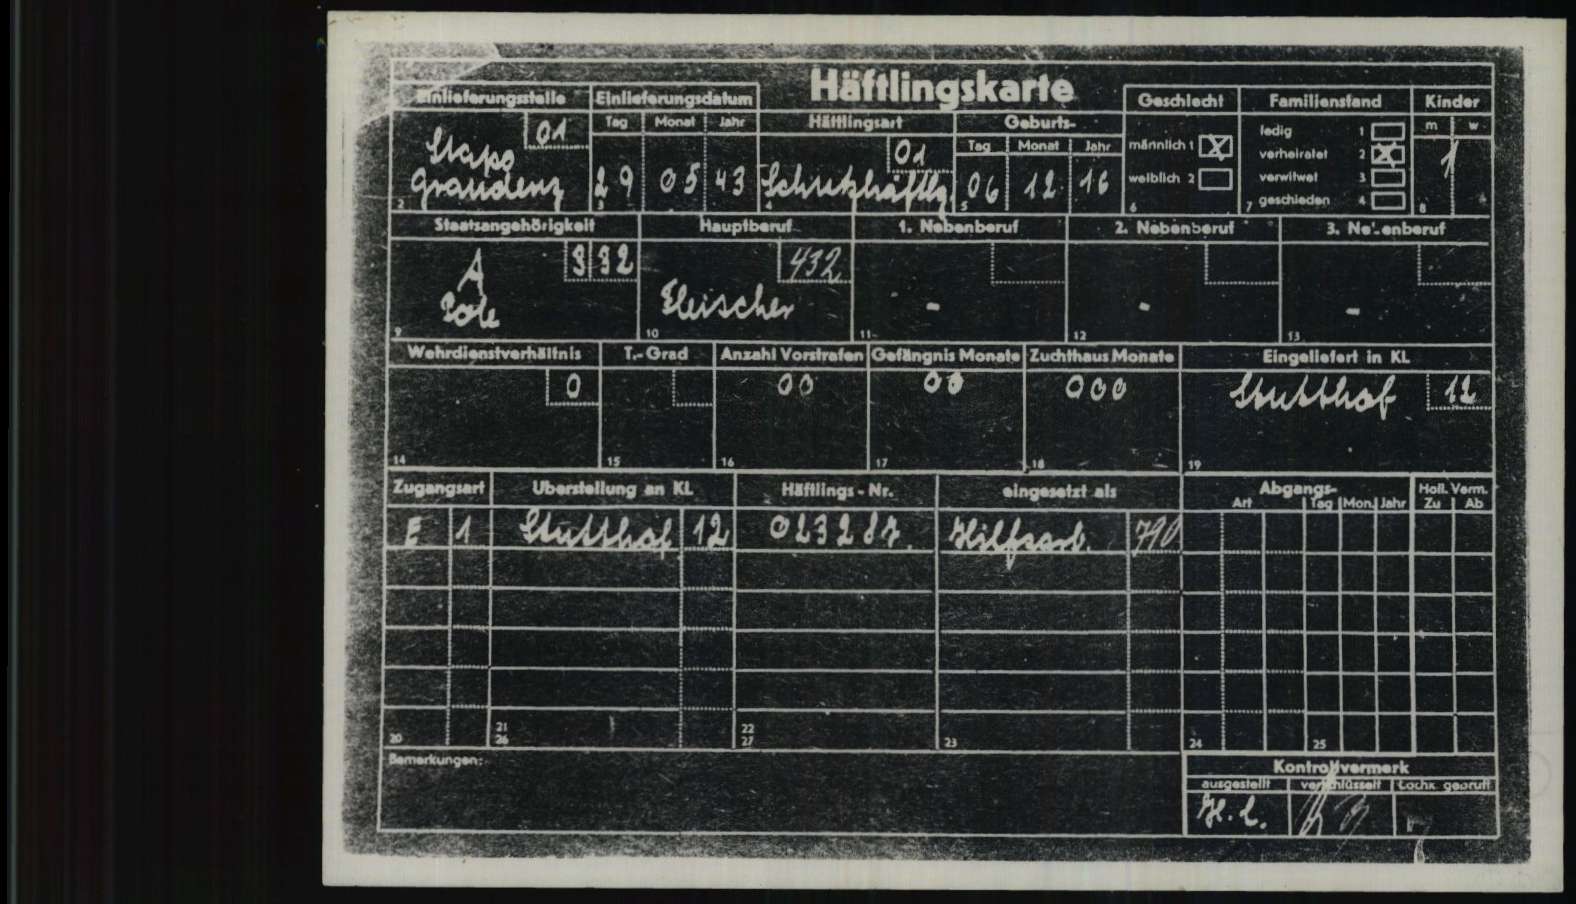 Häftlingskarte
Einlieferungsstelle
01
Stapo
Graudenz
2
Einlieferungsdatum
Tag Monat Jahr
29 05 43
3
Häftlingsart
01
Schutzhäftlg.
4
Geburts-
Tag Monat Jahr
06 12 16
5
Geschlecht
männlich 1 X
weiblich 2
6
Familienstand
ledig 1
verheiratet 2 X
verwitwet 3
geschieden 4
7
Kinder
m w
1
8
Staatsangehörigkeit
A 332
Pole
9
Hauptberuf
432
Fleischer
10
1. Nebenberuf
-
11
2. Nebenberuf
-
12
3. Nebenberuf
-
13
Wehrdienstverhältnis
0
14
T.-Grad
15
Anzahl Vorstrafen
00
16
Gefängnis Monate
00
17
Zuchthaus Monate
000
18
Eingeliefert in KL
Stutthof 12
19
Zugangsart Überstellung an KL Häftlings-Nr. eingesetzt als Abgangs- Holl. Verm.
Art Tag Mon. Jahr Zu Ab
E 1 Stutthof 12 023287 Hilfsarb. 790
20 21 22 23 24 25
26 27
Bemerkungen:
Kontrollvermerk
ausgestellt verschlüsselt Lochk. geprüft
H. L.